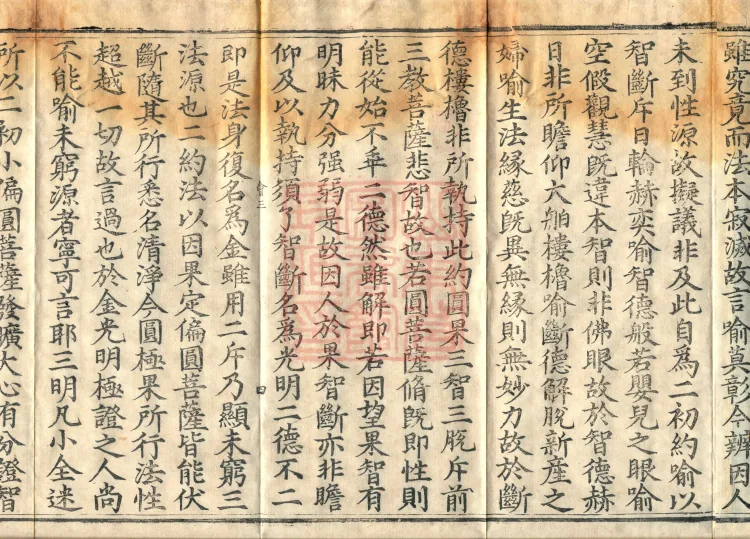 雖究竟而法本寂滅故言喻莫彰今辨因人
未到性源故擬議非及此自為二初約喻以
智斷斥日輪赫奕喻智德般若嬰兒之眼喻
空假觀慧既違本智則非佛眼故於智德赫
日非所瞻仰大舶樓櫓喻斷德解脫新產之
婦喻生法緣慈既異無緣則無妙力故於斷
德樓櫓非所執持此約圓果三智三脫斥前
三教菩薩悲智故也若圓菩薩脩既即性則
能從始不乖二德然雖解即若因望果智有
明昧力分强弱是故因人於果智斷亦非瞻
仰及以執持須了智斷名為光明二德不二
會三
四
即是法身復名為金雖用二斥乃顯未窮三
法源也二約法以因果定偏圓菩薩皆能伏
斷隨其所行悉名清淨今圓極果所行法性
超越一切故言過也於金光明極證之人尚
不能喻未窮源者寧可言耶三明凡小全迷
所以二初小偏圓菩薩發曠大心有分證智